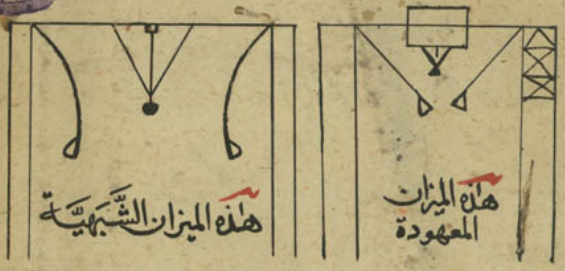 هٰذه الميزان
المعهودة
هٰذه الميزان الشَّبَهِيَّة